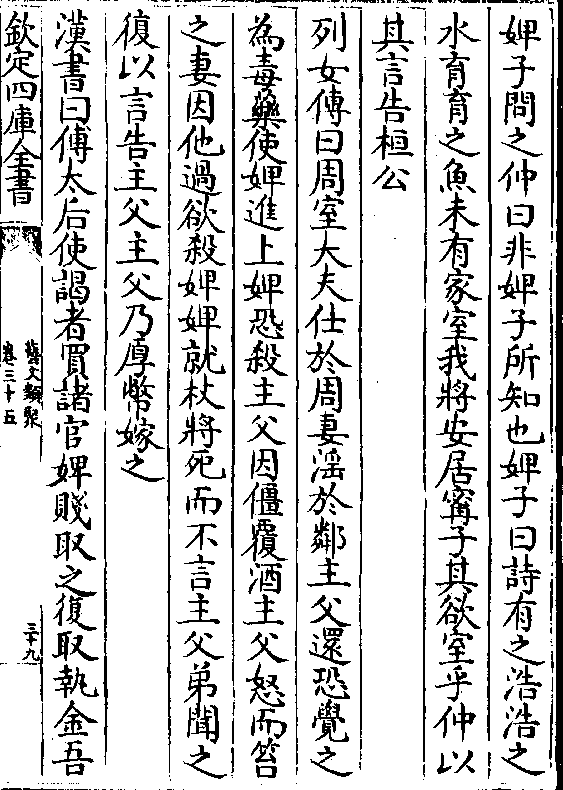 婢子問之仲曰非婢子所知也婢子曰詩有之浩浩之
水育育之魚未有家室我將安居甯子其欲室乎仲以
其言告桓公
列女傳曰周室大夫仕於周妻淫於鄰主父還恐覺之
為毒藥使婢進上婢恐殺主父因僵覆酒主父怒而笞
之妻因他過欲殺婢婢就杖將死而不言主父弟聞之
復以言告主父主父乃厚幣嫁之
漢書曰傅太后使謁者買諸官婢賤取之復取執金吾
欽定四庫全書
藝文類聚
卷三十五
三十九